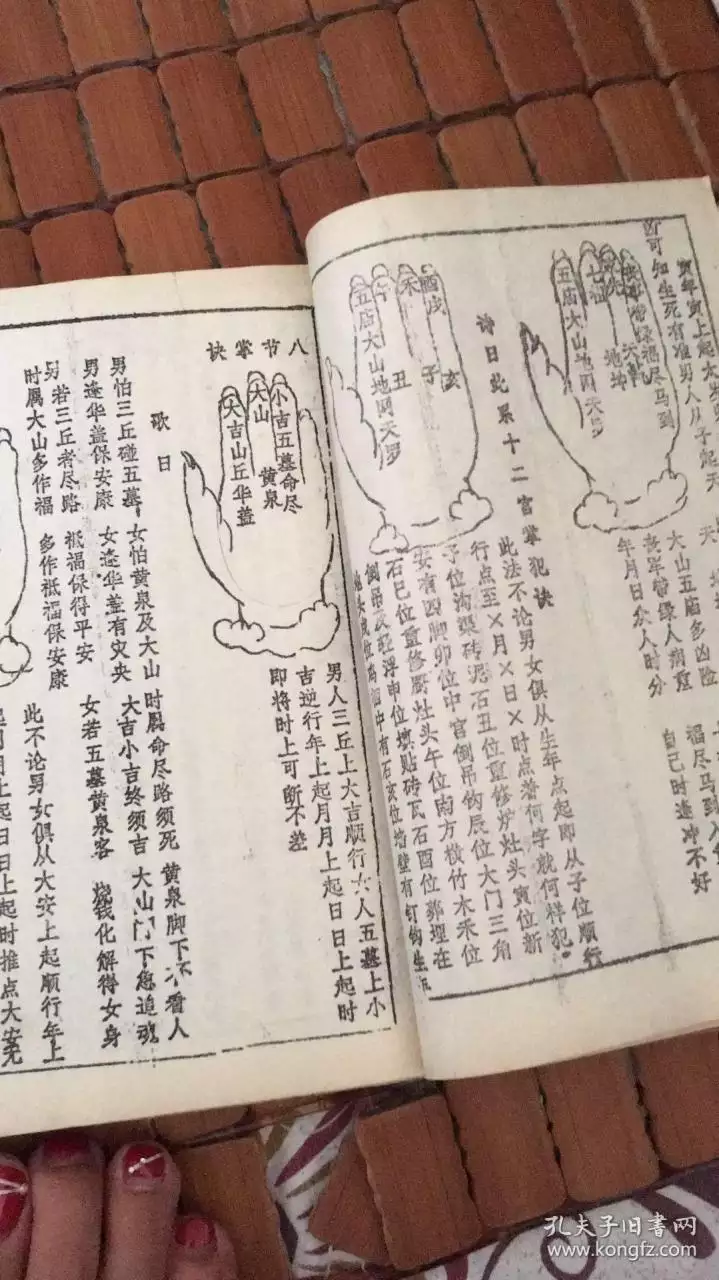 寅年寅上起
男人从子起天
断可知生死有准
天
大山五庙多凶险
丧车带禄人病重
年月日众人时分
福尽马到
自己时逢冲不好
五庙大山地网天罗
诗曰此系十二宫掌犯诀
酉戌
未
午
亥
子
丑
五庙大山地网天罗
此法不论男女俱从生年点起即从子位顺行
行点至×月×日×时点着何字就何样犯。
子位沟渠砖泥石丑位重修炉灶头寅位新
安有四脚卯位中宫倒吊钩辰位大门三角
石巳位重修厨灶头午位南方横竹木未位
倒吊衣轻浮申位填贴砖瓦石酉位葬埋在
中有石亥位墙壁有钉钩生
八节掌诀
小吉五墓命尽
黄泉
大山
大吉山丘华盖
男人三丘上大吉顺行女人五墓上小
吉逆行年上起月月上起日日上起时
即将时上可断不差
歌曰
男怕三丘碰五墓 女怕黄泉及大山 时属命尽路须死 黄泉脚下不看人
男逢华盖保安康 女逢华盖有灾央 大吉小吉终须吉 大山门下急追魂
男若三丘者尽路 祗福保得平安 女若五墓黄泉客 烧钱化解得女身
时属大山多作福 多作祗福保安康
此不论男女俱从大安上起顺行年上
起月月上起日日上起时推点大安无
孔夫子旧书网
www.kongfz.com